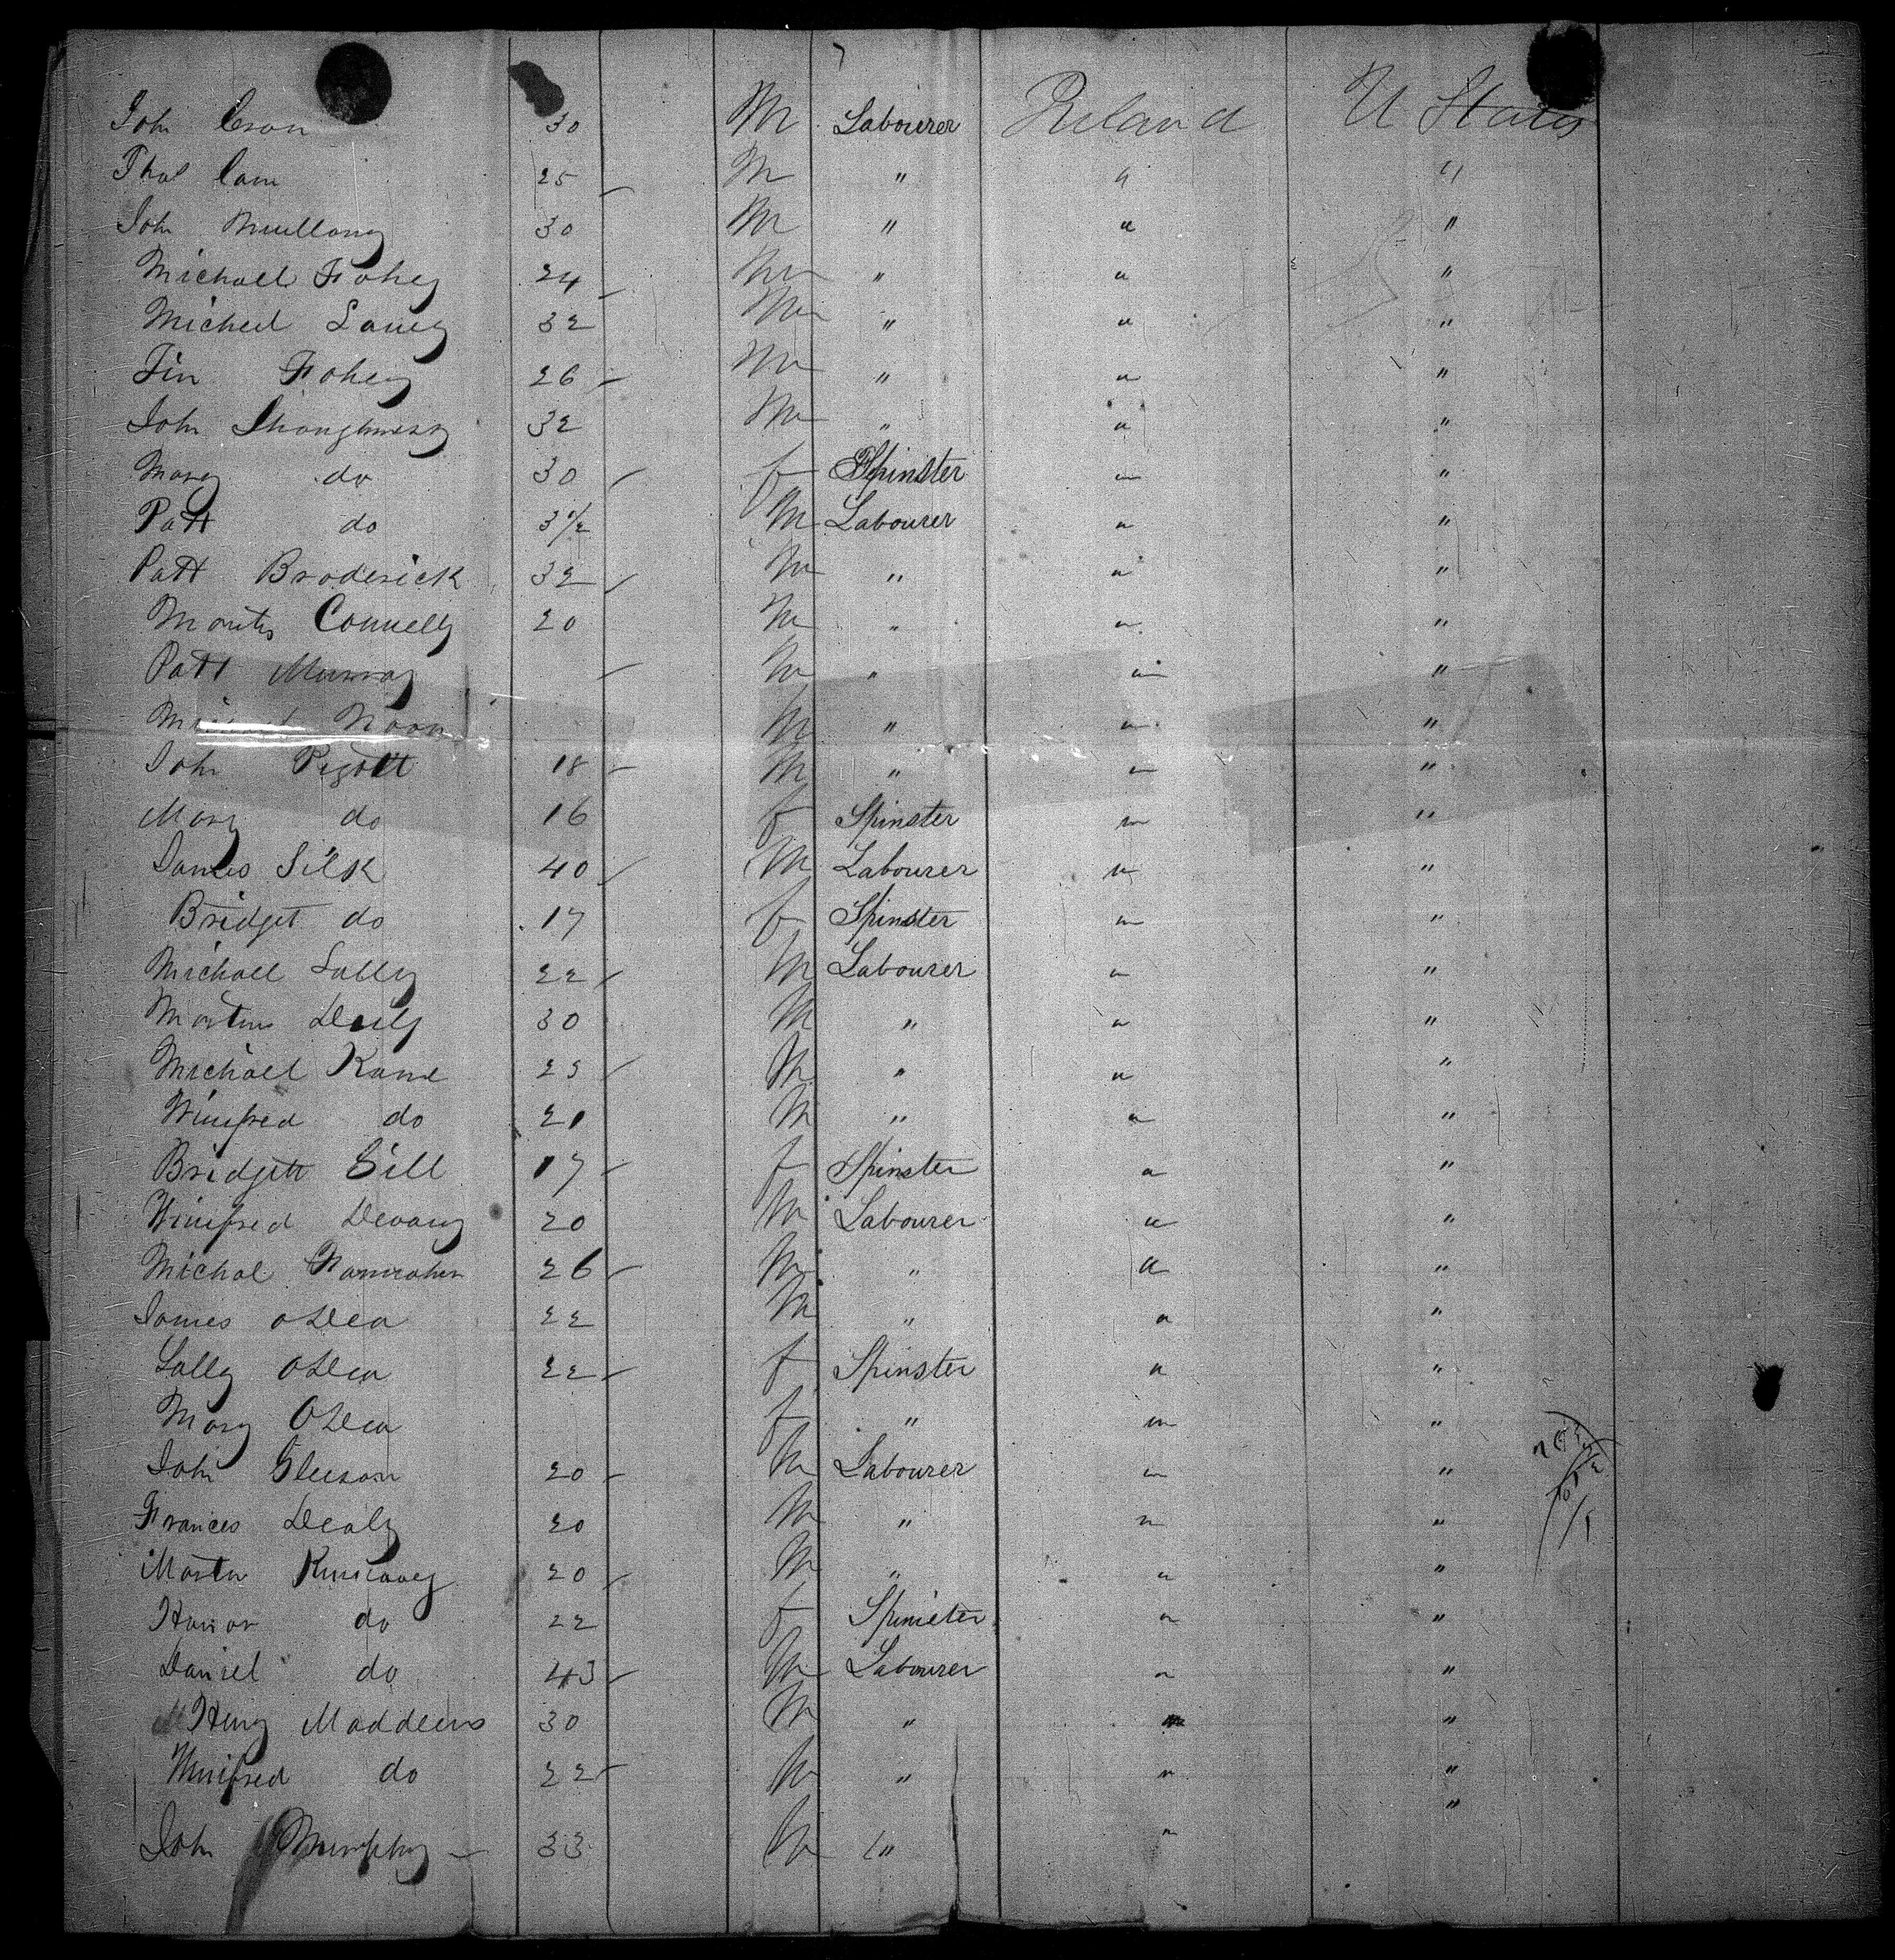 John 30 M Labourer Ireland U States
Thos 25 M " " "
John Mullany 30 M " " "
Michael Fahey 24 M " " "
Michael Laney 32 M " " "
Tim Fahey 26 M " " "
John Shaughnessy 32 M " " "
Mary do 30 f Spinster " "
Patt do 3½ M Labourer " "
Patt Broderick 32 M " " "
Connelly 20 M " " "
Patt Murray M " " "
M " " "
John Pigott 18 M " " "
Mary do 16 f Spinster " "
James Silk 40 M Labourer " "
Bridget do 17 f Spinster " "
Michael Lally 22 M Labourer " "
Martin 30 M " " "
Michael Kane 23 M " " "
Winifred do 21 M " " "
Bridgett Gill 17 f Spinster " "
Winifred Devany 20 M Labourer " "
Michal 26 M " " "
James oDea 22 M " " "
Sally oDea 22 f Spinster " "
Mary ODea f " " "
John Gleeson 20 M Labourer " "
Frances Dealy 20 M " " "
Martin 20 M " " "
Honor do 22 f Spinster " "
Daniel do 43 M Labourer " "
Henry Maddens 30 M " " "
Winifred do 22 M " " "
John Murphy 33 M " " "